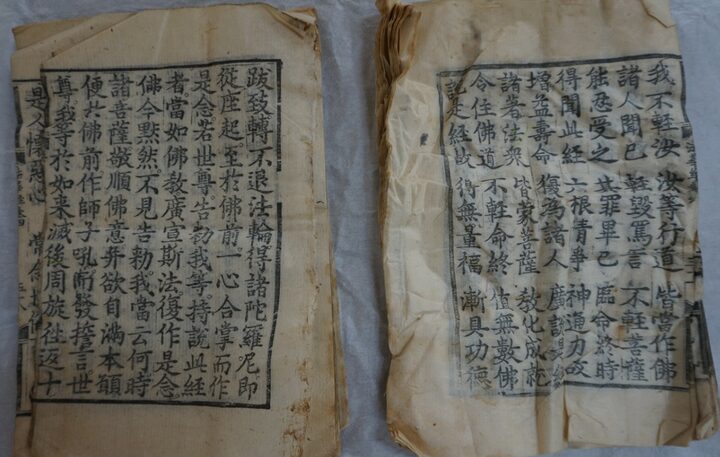 我不輕汝 汝等行道 皆當作佛
諸人聞已 輕毀罵言 不輕菩薩
能忍受之 其罪畢已 臨命終時
得聞此經 六根清淨 神通力故
增益壽命 復為諸人 廣說是經
諸著法衆 皆蒙菩薩 教化成就
令住佛道 不輕命終 值無數佛
說是經故 得無量福 漸具功德
跋致轉不退法輪得諸陀羅尼即
從座起至於佛前一心合掌而作
是念若世尊告勑我等持說此經
者當如佛教廣宣斯法復作是念
佛今黙然不見告勑我當云何時
諸菩薩敬順佛意并欲自滿本願
便共佛前作師子吼而發誓言世
尊我等於如來滅後周旋徃返十
是人懷惡心 常念